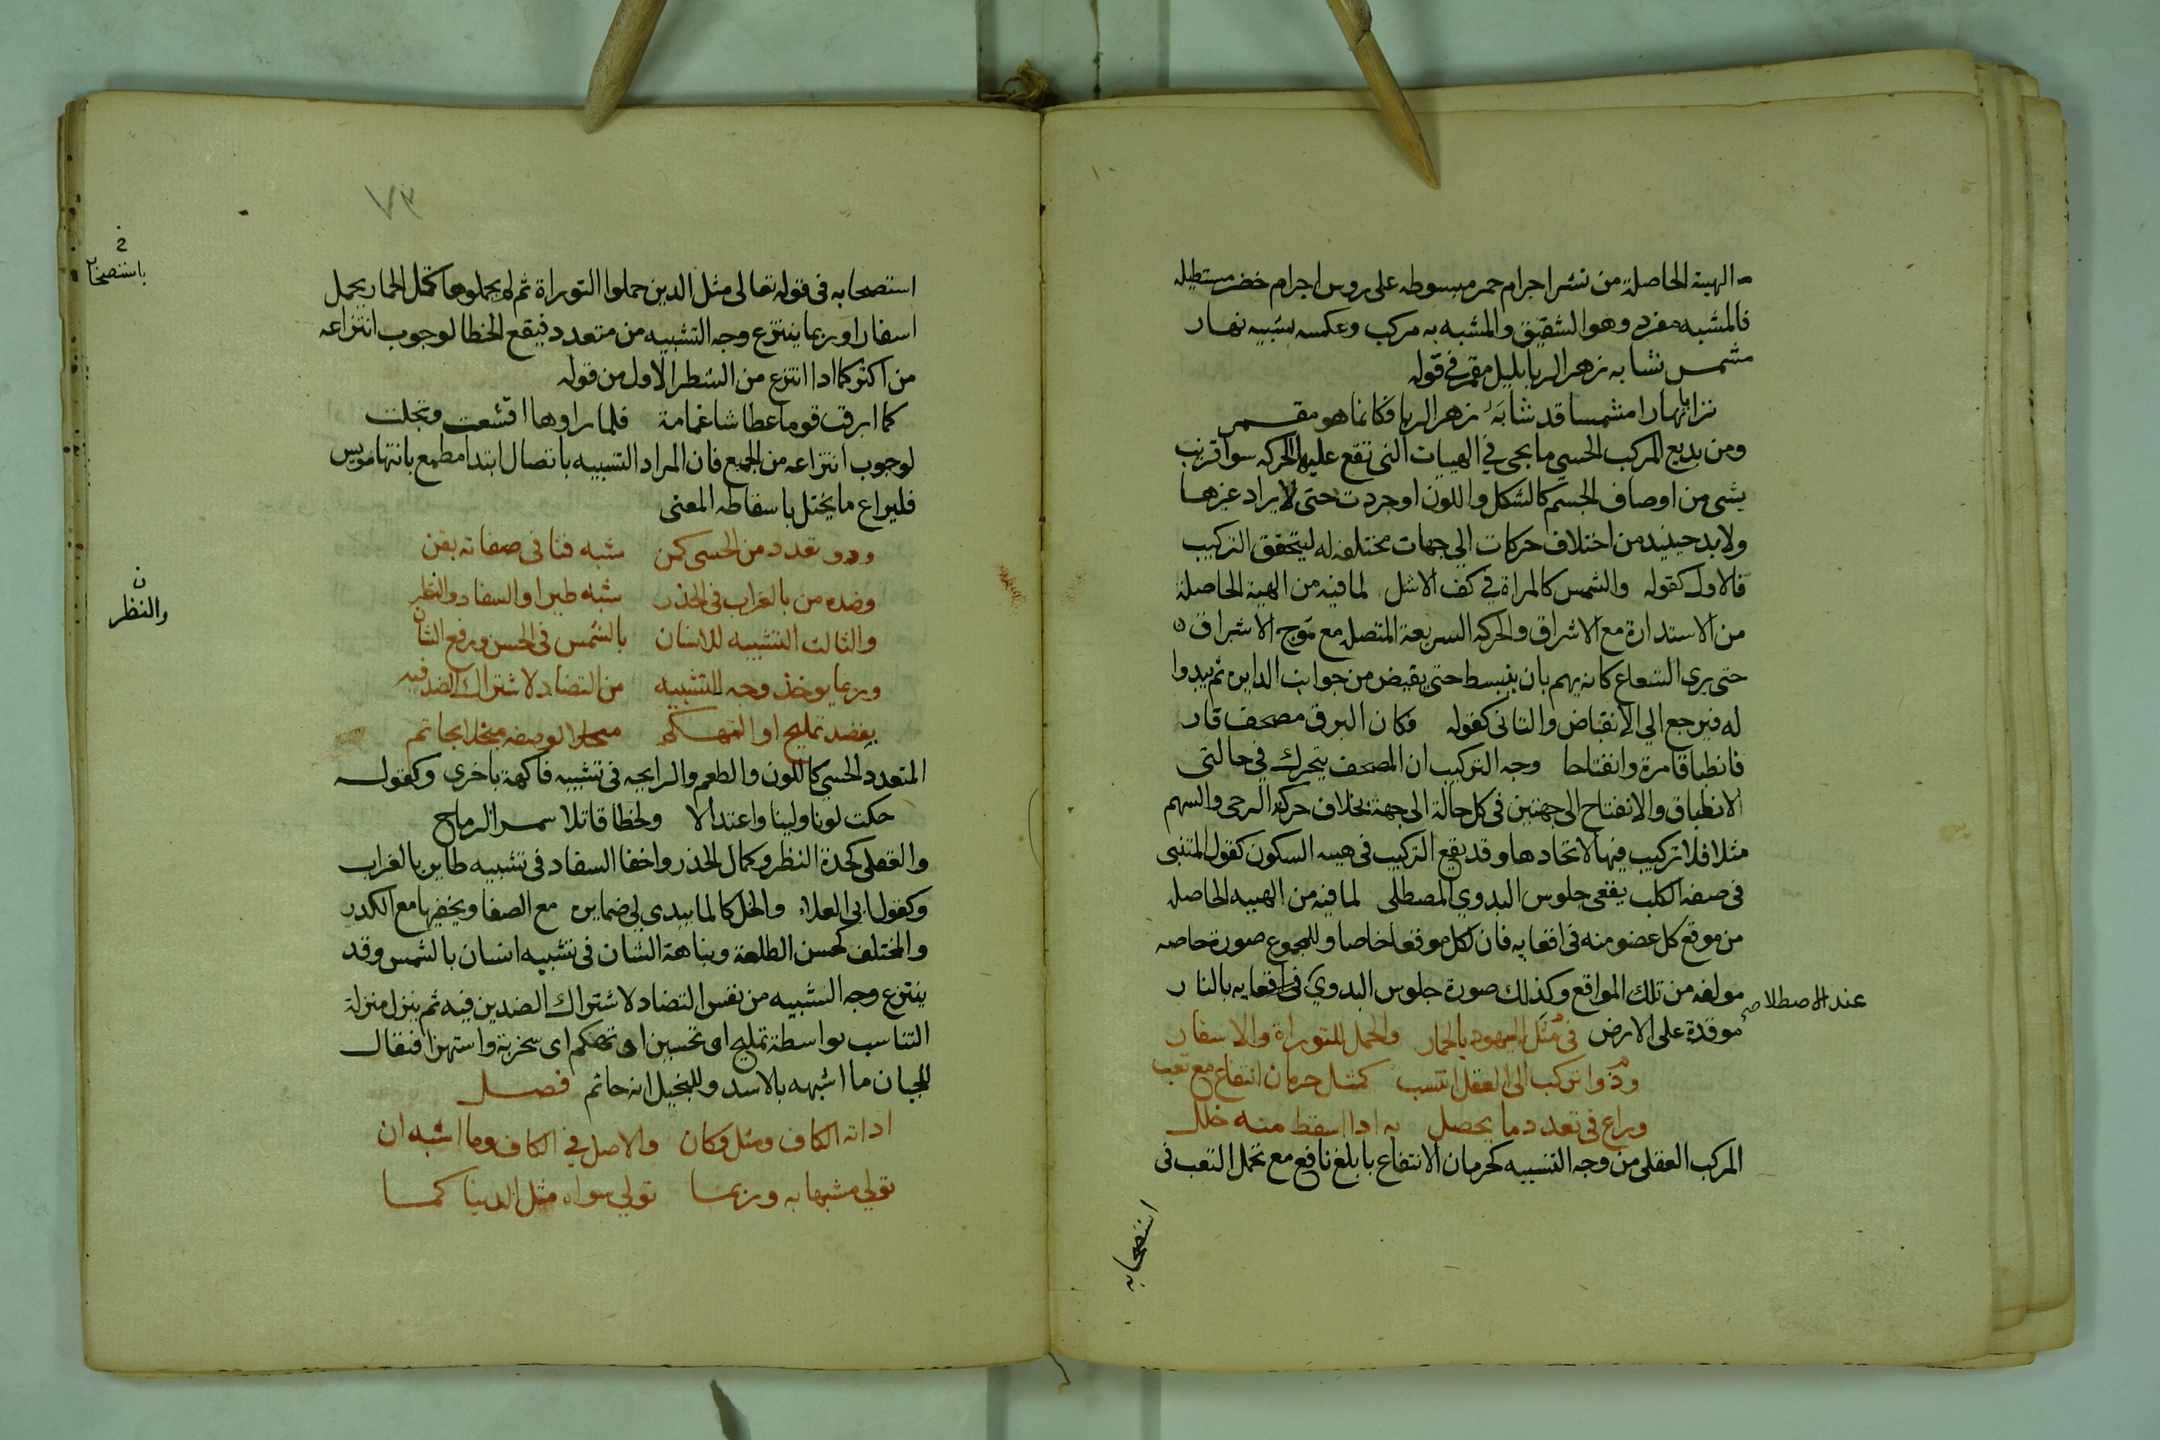 الهية الحاصلة من نشر اجرام حمر مبسوطه على روس اجرام خضر مستطيله
فالمشبه مفرد وهو الشقيق والمشبه به مركب وعكسه تشبيه نهار
مشمس شابه زهر الربا بليل مقمر في قوله
تريا نهارا مشمسا قد شابه زهر الربا فكانما هو مقمر
ومن بديع المركب الحسي ما يجي في الهييات التي تقع عليها الحركه سوا قرنت
بشي من اوصاف الجسم كالشكل واللون او جردت حتى لا يراد غيرها
ولا بد حينيذ من اختلاف حركات الي جهات مختلفه له ليتحقق التركيب
فالاول كقوله والشمس كالمراة في كف الاشل لما فيه من الهية الحاصلة
من الاستدارة مع الاشراق والحركه السريعة المتصله مع تموج الاشراق
حتى يرى الشعاع كانه يهم بان ينبسط حتى يفيض من جوانب الدايره ثم يبدوا
له فيرجع الي الانقباض والثانى كقوله فكان البرق مصحف قار
فانطباقا مرة وانفتاحا وجه التركيب ان المصحف يتحرك في حالتي
الانطباق والانفتاح الى جهتين في كل حالة الى جهة بخلاف حركة الرحى والسهم
مثلا فلا تركيب فيها لاتحادها وقد يقع التركيب في هيية السكون كقول المتنبى
في صفة الكلب يقعى جلوس البدوي المصطلى لما فيه من الهييه الحاصله
من موقع كل عضو منه في اقعايه فان لكل موقعا خاصا وللمجموع صورة خاصه
مولفه من تلك المواقع وكذلك صورة جلوس البدوي في اقعايه بالنار
عند الاصطلا
موقدة على الارض في مثل اليهود بالحمار والحمل للتوراة والاسفار
وذوا تركب الى العقل انتسب كمثل حرمان انتفاع مع تعب
وراع في تعدد ما يحصل به اذا اسقط منه خلل
المركب العقلي من وجه التشبيه كحرمان الانتفاع بابلغ نافع مع تحمل التعب في
استصحابه
٧٣
استصحابه في قوله تعالى مثل الذين حملوا التوراة ثم لم يحملوها كمثل الحمار يحمل
باستصحاب
اسفارا وربما ينتزع وجه التشبيه من متعدد فيقع الخطا لوجوب انتزاعه
من اكثر كما اذا انتزع من الشطر الاول من قوله
كما ابرقت قوما عطاشا غمامة فلما راوها اقشعت وتجلت
لوجوب انتزاعه من الجميع فان المراد التشبيه باتصال ابتدا مطمع بانتها مويس
فليراع ما يختل باسقاطه المعنى
وذو تعدد من الحسى كمن شبه فنا في صفاته بفن
وضده من بالغراب في الحذر شبه طيرا والسفاد والنظر
والنظر
والثالث التشبيه للانسان بالشمس في الحسن ورفع الشان
وربما يوخذ وجه للتشبيه من التضاد لاشتراك الضد فيه
بقصد تمليح او التهكم
المتعدد الحسي كاللون والطعم والرايحه في تشبيه فاكهة باخرى وكقوله
حكت لونا ولينا واعتدالا ولحظا قاتلا سمر الرماح
والعقلى كحدة النظر وكمال الحذر واخفا السفاد في تشبيه طاير بالغراب
وكقول ابي العلاء والخل كالما يبدي لي ضمايره مع الصفا ويخفيها مع الكدر
والمختلف كحسن الطلعة ونباهة الشان في تشبيه انسان بالشمس وقد
ينتزع وجه التشبيه من نفس التضاد لاشتراك الضدين فيه ثم ينزل منزلة
التناسب بواسطة تمليح اى تحسين او تهكم اى سخرية واستهزا فيقال
للجبان ما اشبهه بالاسد وللبخيل انه حاتم فصل
اداته الكاف ومثل وكان والاصل في الكاف وما اشبه ان
تولي مشبها به وربما تولي سواه مثل الدنيا كما